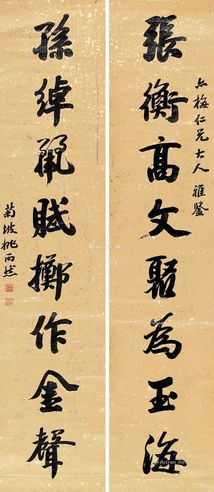 梅仁兄大人雅鑒
張衡高文聚為玉海
孫綽麗賦擲作金聲
菊坡姚丙然